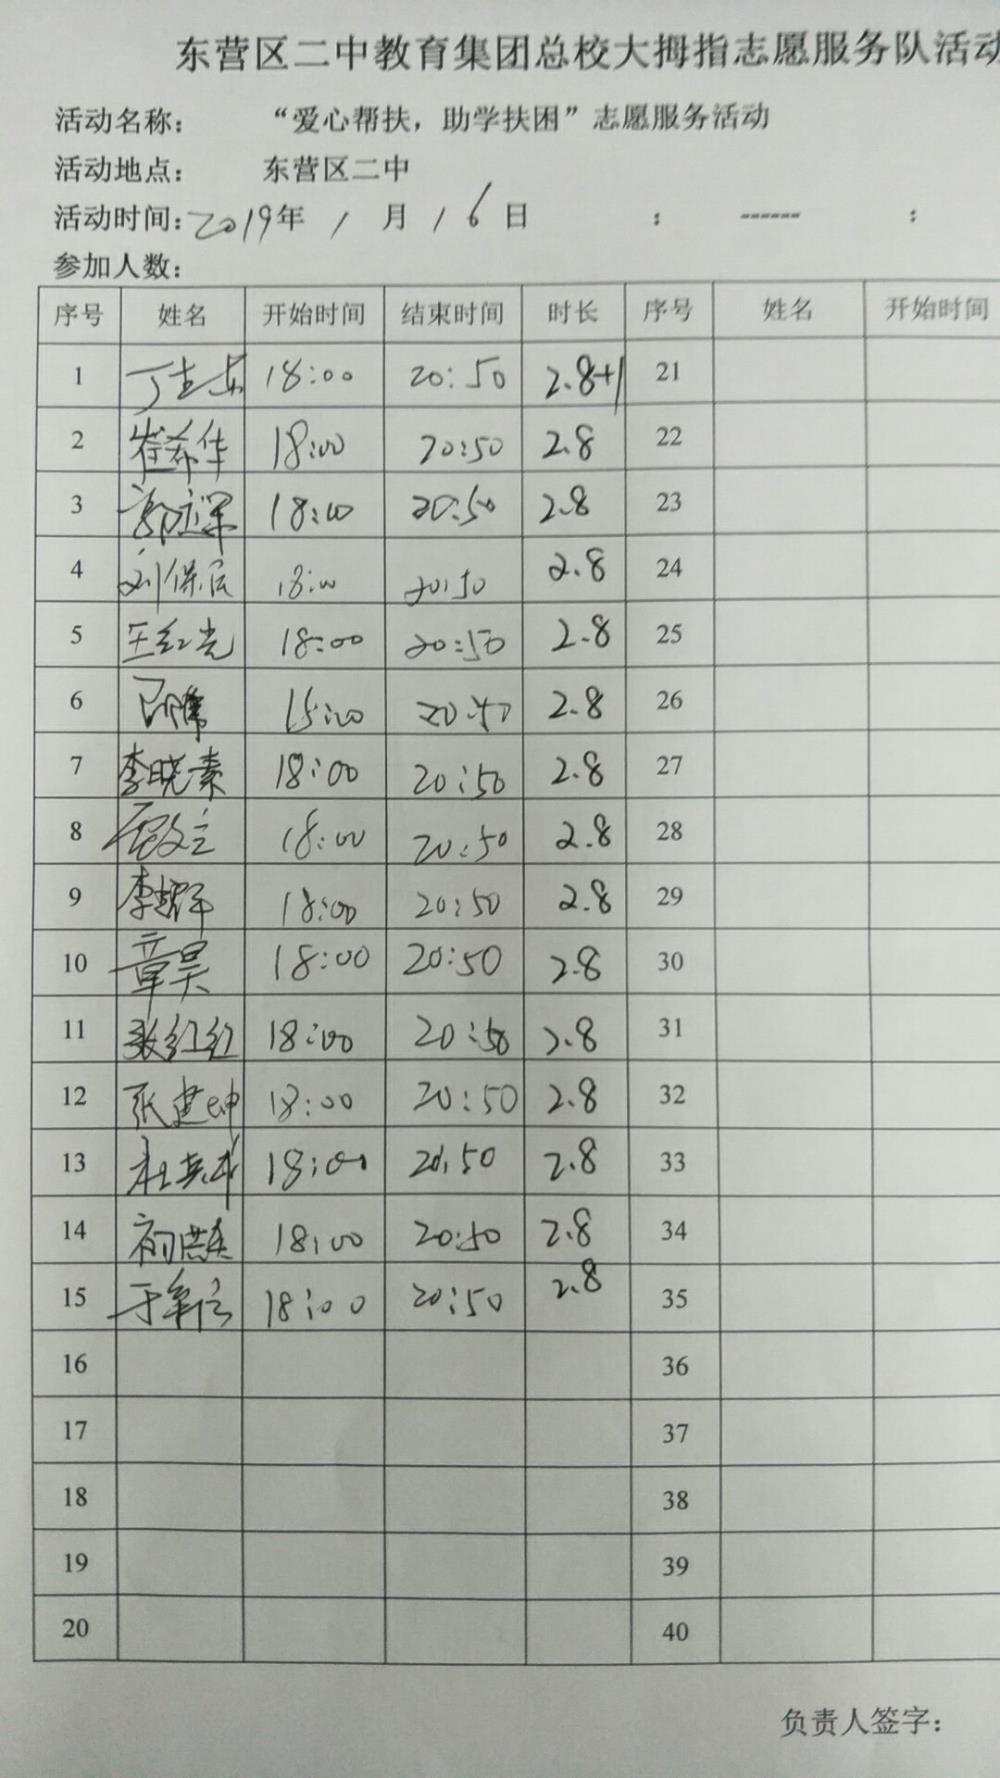 东营区二中教育集团总校大拇指志愿服务队活动
活动名称： “爱心帮扶，助学扶困”志愿服务活动
活动地点： 东营区二中
活动时间：2019年 1 月 16 日 ： ------ ：
参加人数：
序号 姓名 开始时间 结束时间 时长 序号 姓名 开始时间
1 18:00 20:50 2.8+1 21
2 崔希华 18:00 20:50 2.8 22
3 18:00 20:50 2.8 23
4 刘保民 18:00 20:50 2.8 24
5 王红光 18:00 20:50 2.8 25
6 20:50 2.8 26
7 李晓素 18:00 20:50 2.8 27
8 18:00 20:50 2.8 28
9 18:00 20:50 2.8 29
10 章昊 18:00 20:50 2.8 30
11 张红红 18:00 20:50 2.8 31
12 张建坤 18:00 20:50 2.8 32
13 18:00 20:50 2.8 33
14 18:00 20:50 2.8 34
15 18:00 20:50 2.8 35
16 36
17 37
18 38
19 39
20 40
负责人签字：